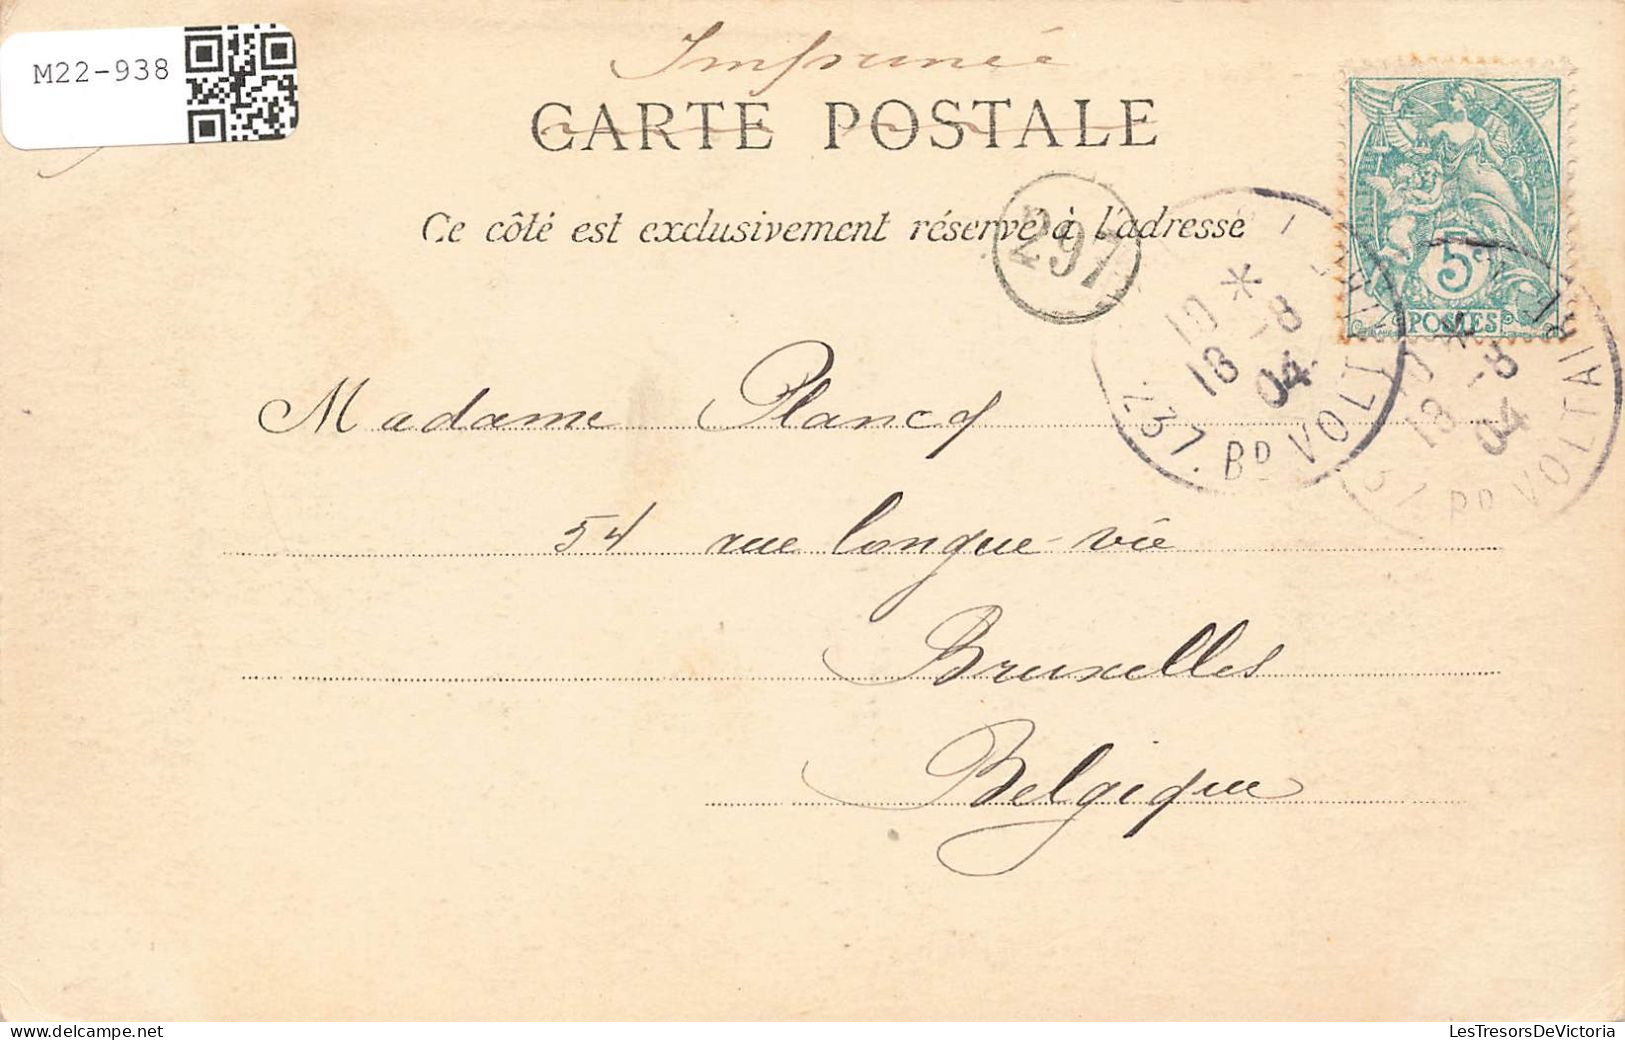 M22-938
Imprimé
CARTE POSTALE
Ce côté est exclusivement réservé à l'adresse
297
5
POSTES
10 *
18 -8
04
237. BD VOLTAIRE
10 *
18 -8
04
37 BD VOLTAIRE
Madame Plancq
54 rue longue-vie
Bruxelles
Belgique
LesTresorsDeVictoria